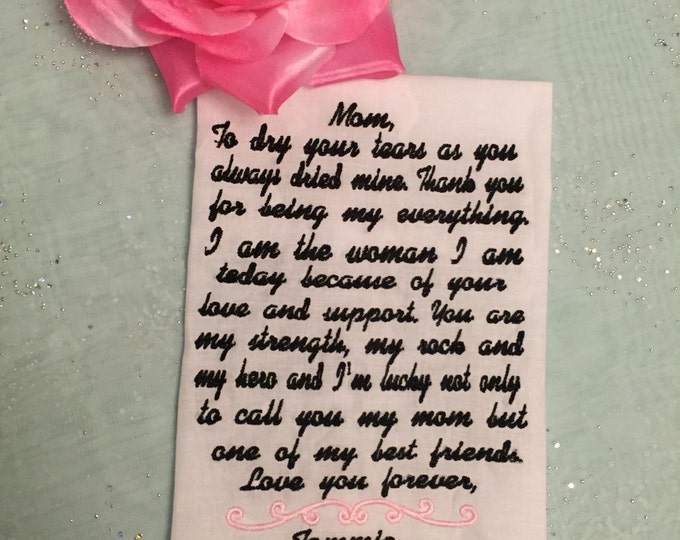 Mom,
To dry your tears as you
always dried mine. Thank you
for being my everything.
I am the woman I am
today because of your
love and support. You are
my strength, my rock and
my hero and I'm lucky not only
to call you my mom but
one of my best friends.
Love you forever,